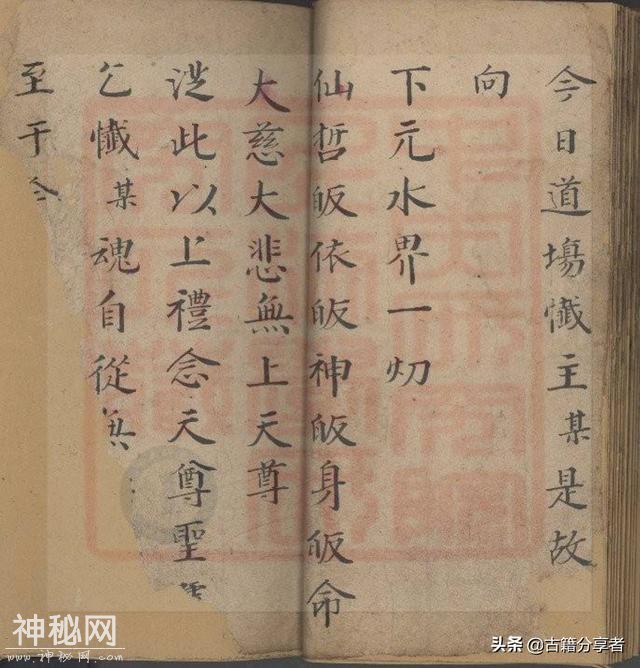 今日道塲懴主某是故
向
下元水界一切
仙哲皈依皈神皈身皈命
大慈大悲無上天尊
從此以上禮念天尊聖
乞懴某魂自從無
至于今
神秘网
www.shenmiwang.com
头条 @古籍分享者